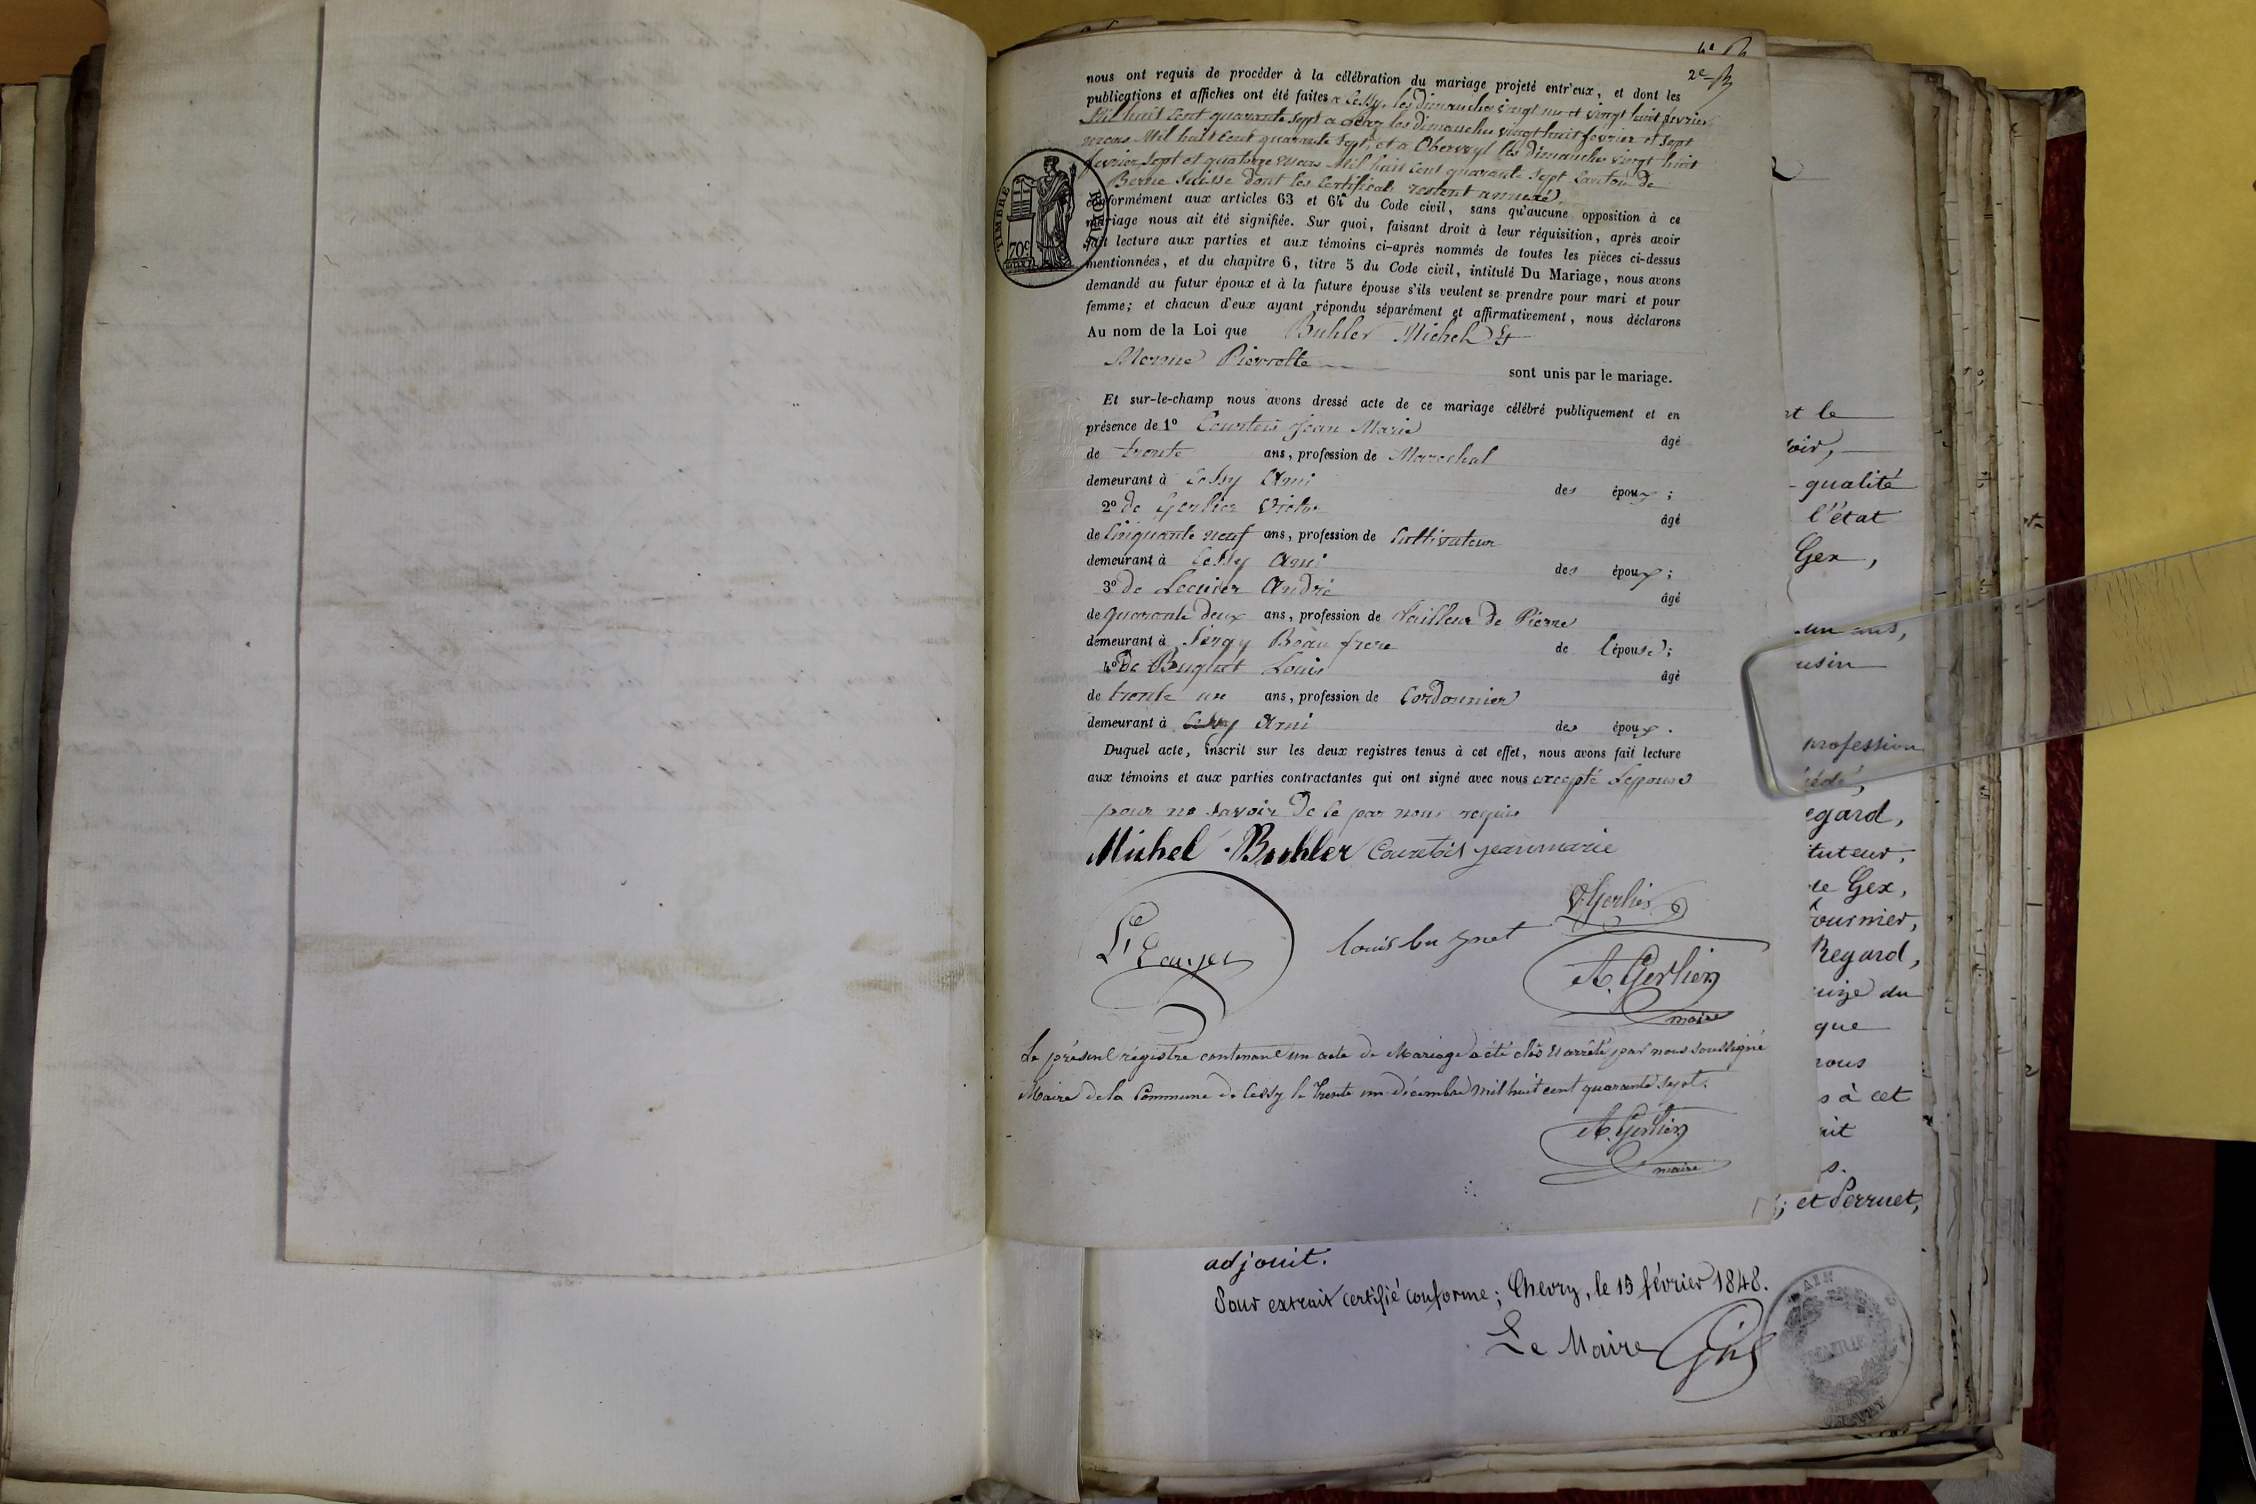 2e
nous ont requis de procéder à la célébration du mariage projeté entr'eux, et dont les
publications et affiches ont été faites a Cessy, les dimanche vingt un et vingt huit février
Mil huit Cent quarante sept a les dimanches vingt huit fevrier et sept
mars Mil huit Cent quarante Sept, et a Oberwyl les dimanche vingt huit
fevrier, sept et quatorze mars Mil huit Cent quarante Sept Canton de
Berne Suisse dont les Certificats restent annexé
conformément aux articles 63 et 64 du Code civil, sans qu'aucune opposition à ce
mariage nous ait été signifiée. Sur quoi, faisant droit à leur réquisition, après avoir
fait lecture aux parties et aux témoins ci-après nommés de toutes les pièces ci-dessus
mentionnées, et du chapitre 6, titre 5 du Code civil, intitulé Du Mariage, nous avons
demandé au futur époux et à la future épouse s'ils veulent se prendre pour mari et pour
femme; et chacun d'eux ayant répondu séparément et affirmativement, nous déclarons
Au nom de la Loi que Buhler Michel Et
Pierrette
sont unis par le mariage.
Et sur-le-champ nous avons dressé acte de ce mariage célébré publiquement et en
présence de 1º Courtois Jean Marie âgé
de trente ans, profession de Marechal
demeurant à Cessy Ami des époux;
2º de Gerlier Victor âgé
de Cinquante neuf ans, profession de Cultivateur
demeurant à Cessy Ami des époux;
3º de Lecuier André âgé
de quarante deux ans, profession de Tailleur de Pierre
demeurant à Sergy Beau frere de l'épouse;
4º De Buguet Louis âgé
de trente un ans, profession de Cordonnier
demeurant à Cessy Ami des époux.
Duquel acte, inscrit sur les deux registres tenus à cet effet, nous avons fait lecture
aux témoins et aux parties contractantes qui ont signé avec nous excepté Lepouse
pour ne savoir de ce par nous requis
Michel Buhler Courtois jeanmarie
V. Gerlier
louis bugnet
A. Gerlier
maire
Le présent régistre contenant un acte de Mariage a été clos et arrêté par nous soussigné
Maire de la Commune de Cessy le Trente un décembre mil huit cent quarante sept.
A. Gerlier
maire
TIMBRE ROYAL
70c
nt le
voir,
qualité
l'état
Gex,
un ans,
usin
profession
cédé,
egard,
tuteur,
de Gex,
Fournier,
Regard,
que
nous
s à cet
ait
s.
; et Perruet,
adjoint.
Pour extrait certifié conforme; Chevry, le 15 février 1848.
Le Maire
AIN
MAIRIE
CHEVRY